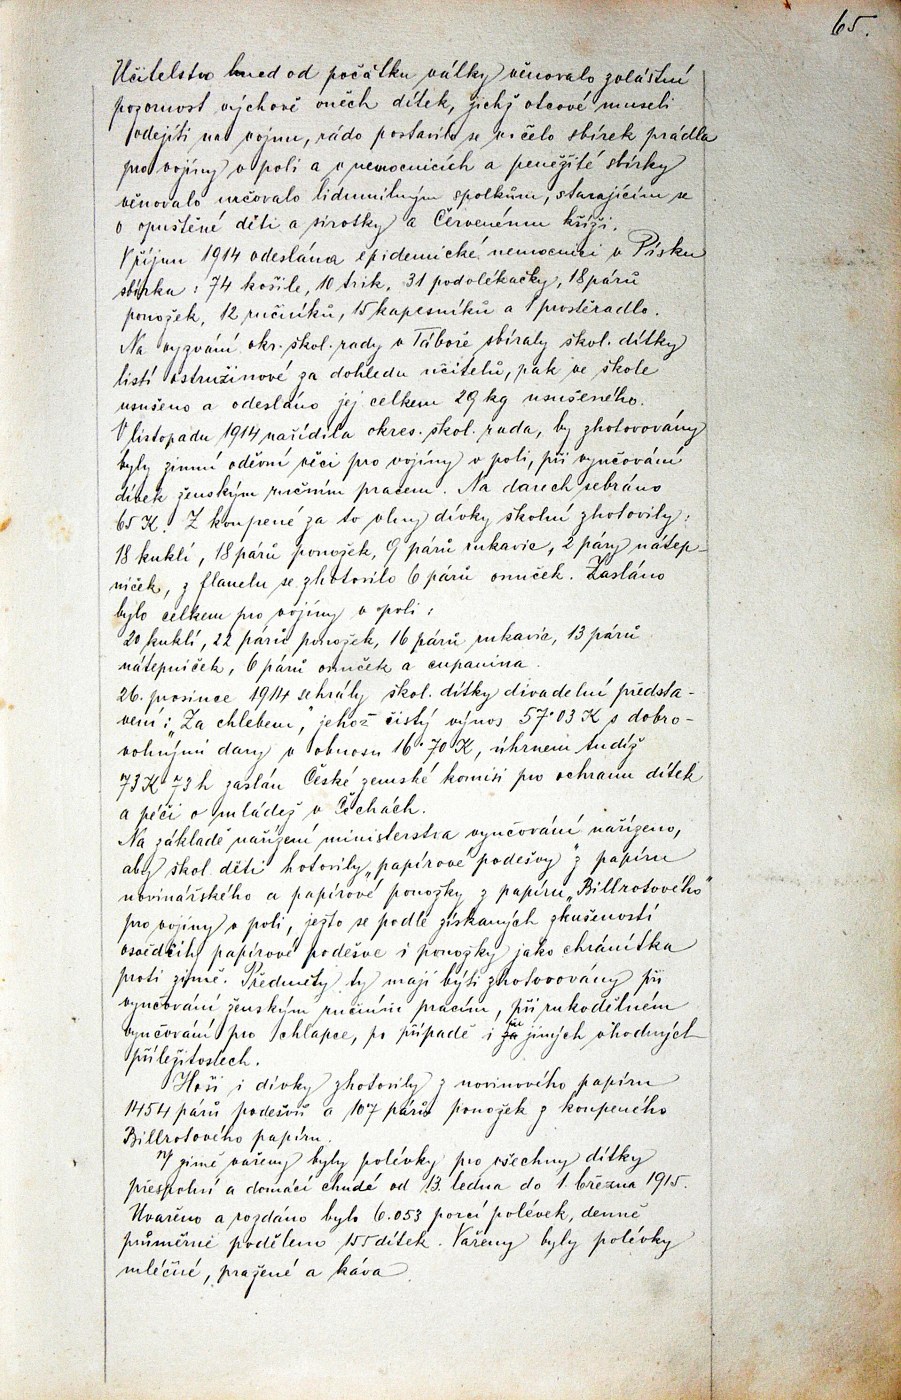 65.
Učitelstvo hned od počátku války věnovalo zvláštní
pozornost výchově oněch dítek, jichž otcové museli
odejíti na vojnu, rádo postavilo se v čelo sbírek prádla
pro vojíny v poli a v nemocnicích a peněžité sbírky
věnovalo určovalo lidumilným spolkům, starajícím se
o opuštěné děti a sirotky a Červenému kříži.
V říjnu 1914 odeslána epidemické nemocnici v Písku
sbírka: 74 košile, 10 trik, 31 podvlékačky, 18 párů
ponožek, 12 ručníků, 15 kapesníků a 1 prostěradlo.
Na vyzvání okr. škol. rady v Táboře sbíraly škol. dítky
listí ostružinové za dohledu učitelů, pak ve škole
usušeno a odesláno jej celkem 29 kg usušeného.
V listopadu 1914 nařídila okres. škol. rada, by zhotovovány
byly zimní oděvní věci pro vojíny v poli, při vyučování
dívek ženským ručním pracem. Na darech sebráno
65 K. Z koupené za to vlny dívky školní zhotovily:
18 kuklí, 18 párů ponožek, 9 párů rukavic, 2 páry nátep-
niček, z flanelu se zhotovilo 6 párů onuček. Zasláno
bylo celkem pro vojíny v poli:
20 kuklí, 22 párů ponožek, 16 párů rukavic, 13 párů
nátepniček, 6 párů onuček a cupanina.
26. prosince 1914 sehrály škol. dítky divadelní předsta-
vení: „Za chlebem," jehož čistý výnos 57·03 K s dobro-
volnými dary v obnosu 16·70 K, úhrnem tudíž
73 K 73 h zaslán České zemské komisi pro ochranu dítek
a péči o mládež v Čechách.
Na základě nařízení ministerstva vyučování nařízeno,
aby škol. děti hotovily „papírové podešvy" z papíru
novinářského a papírové ponožky z papíru „Billrotového"
pro vojíny v poli, ježto se podle získaných zkušeností
osvědčily papírové podešve i ponožky jako chránítka
proti zimě. Předměty ty mají býti zhotovovány při
vyučování ženským ručním pracím, při rukodílném
vyučování pro chlapce, po případě i při jiných vhodných
příležitostech.
Hoši i dívky zhotovily z novinového papíru
1454 párů podešvů a 107 párů ponožek z koupeného
Billrotového papíru.
V zimě vařeny byly polévky pro všechny dítky
přespolní a domácí chudé od 13. ledna do 1. března 1915.
Uvařeno a rozdáno bylo 6.053 porcí polévek, denně
průměrně poděleno 155 dítek. Vařeny byly polévky
mléčné, pražené a káva.